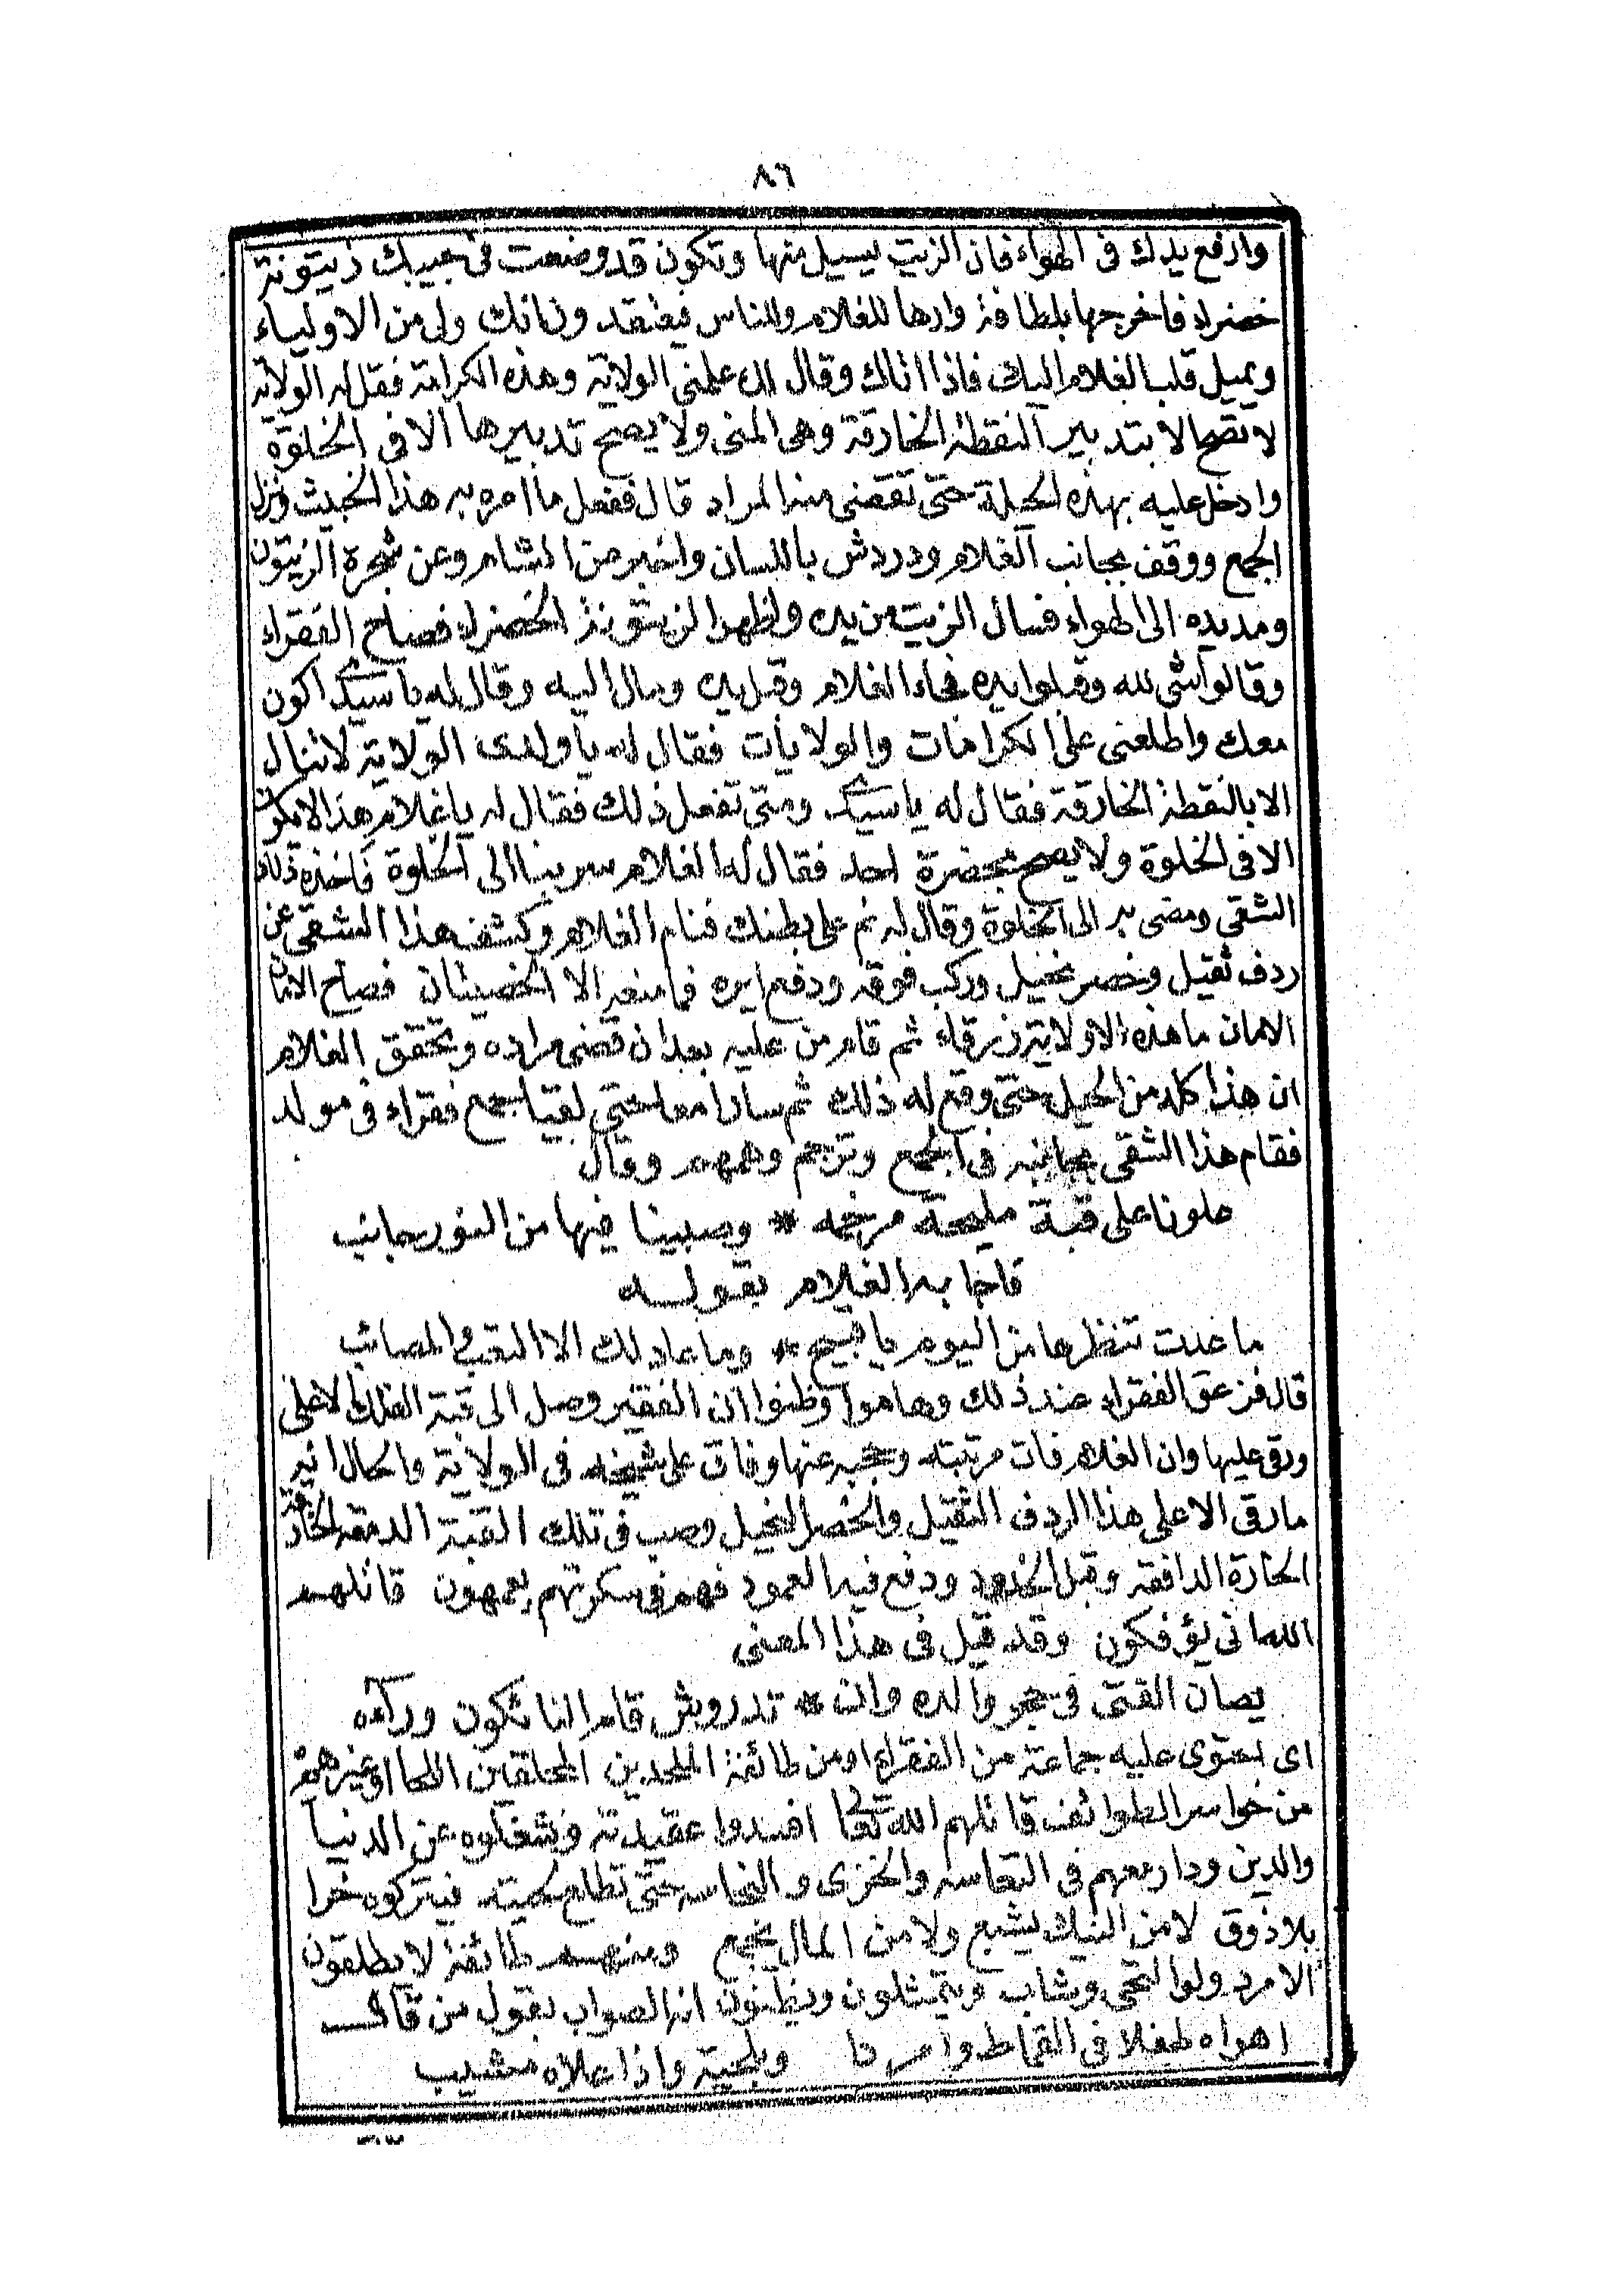 ٨٦
وارفع يدك فى الهواء فان الزيت يسيل منها وتكون قد وضعت فى جيبك زيتونة
خضراء فاخرجها بلطافة وارها للغلام وللناس فيعتقدون انك ولى من الاولياء
ويميل قلب الغلام اليك فاذا اتاك وقال لك علمنى الولاية وهذه الكرامة فقل له الولاية
لا تصح الا بتدبير النقطة الخارقة وهى المنى ولا يصح تدبيرها الا فى الخلوة
وادخل عليه بهذه الحيلة حتى تقضى منه المراد قال ففعل ما امره به هذا الخبيث ونزل
الجمع ووقف بجانب الغلام ودردش باللسان واخبر عن الشام وعن شجرة الزيتون
ومد يده الى الهواء فسال الزيت من يده واظهر الزيتونة الخضراء فصاح الفقراء
وقالوا شى لله وقبلوا يده فجاء الغلام وقبل يده ومال اليه وقال له يا سيدى اكون
معك واطلعنى على الكرامات والولايات فقال له يا ولدى الولاية لا تنال
الا بالنقطة الخارقة فقال له يا سيدى ومتى تفعل ذلك فقال له يا غلام هذا لا يكون
الا فى الخلوة ولا يصح بحضرة احد فقال له الغلام سر بنا الى الخلوة فاخذه ذلك
الشقى ومضى به الى الخلوة وقال له نم على بطنك فنام الغلام وكشف هذا الشقى عن
ردف ثقيل وخصر نحيل وركب فوقه ودفع ايره فما منعه الا الخصيتان فصاح الامان
الامان ما هذه الا ولاية زرقاء ثم قام من عليه بعد ان قضى مراده وتحقق الغلام
ان هذا كله من الحيل حتى وقع له ذلك ثم سارا معا حتى لقيا جمع فقراء فى مولد
فقام هذا الشقى بجانبه فى الجمع وترجم وهمهم وقال
علونا على قبة مليحة مرخمه * وصبينا فيها من النور جانب
فاجابه الغلام بقوله
ما عدت تنظرها من اليوم يا قبيح * وما عاد لك الا التعب والمصائب
قال فزعق الفقراء عند ذلك وهاموا وظنوا ان الفقير وصل الى قبة الفلك الاعلى
ورقى عليها وان الغلام فات مرتبته وحجبه عنها وفاق على شيخه فى الولاية والحال انه
ما رقى الا على هذا الردف الثقيل والخصر النحيل وصب فى تلك القبة الدفقة الخارقة
الحارة الدافقة وقبل الخدود ودفع فيه العمود فهم فى سكرتهم يعمهون قاتلهم
الله انى يؤفكون وقد قيل فى هذا المعنى
يصان الفتى فى حجر والده وان * تدروش قام الناكون ورآءه
اى احتوى عليه جماعة من الفقراء او من طائفة الملحدين المحلقين اللحا او غيرهم
من خوامس الطوائف قاتلهم الله تعالى افسدوا عقيدته وشغلوه عن الدنيا
والدين ودار معهم فى التعاسه والخزى والنجاسه حتى تطلع لحيته فيتركوه خرا
بلا ذوق لا من النيك يشبع ولا من المال يجمع ومنهم طائفة لا يطلقون
الامرد ولو التحى وشاب ويتمثلون ويظنون انه الصواب بقول من قال
اهواه طفلا فى القماط وامردا وبلحية واذا علاه مشيب